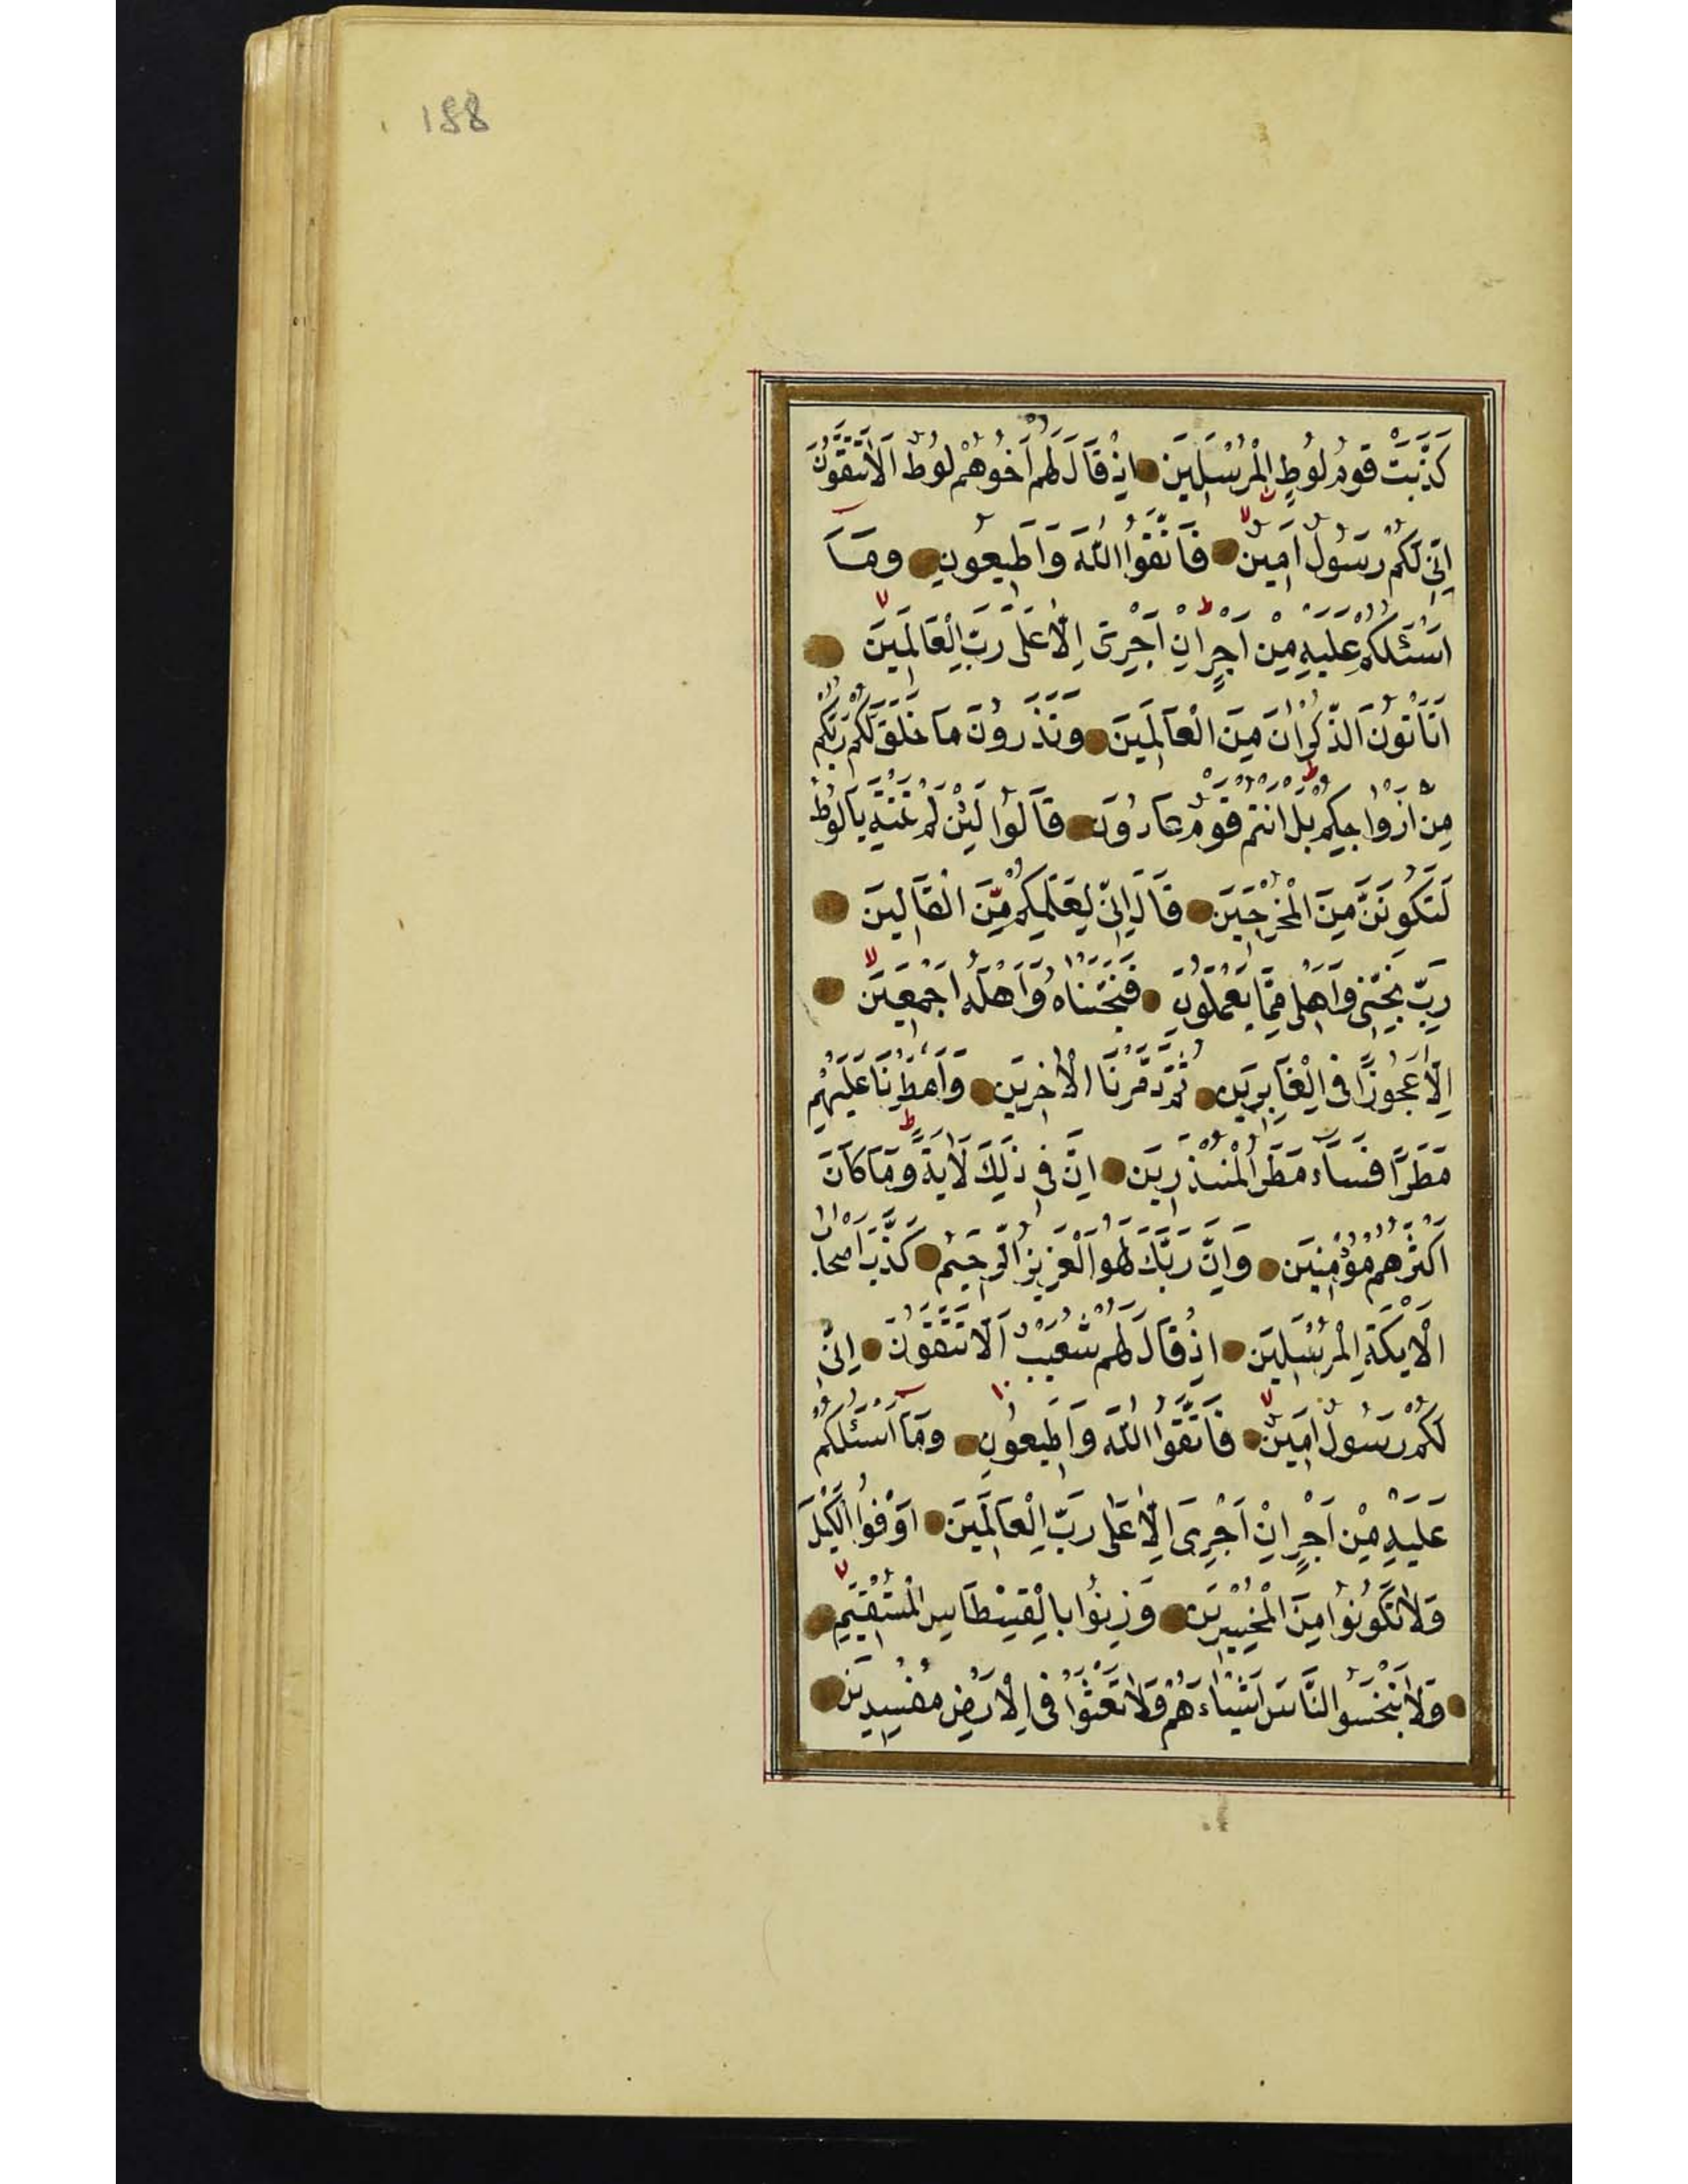 188
كَذَّبَتْ قَوْمُ لُوطٍ الْمُرْسَلِينَ اِذْ قَالَ لَهُمْ اَخُوهُمْ لُوطٌ اَلَا تَتَّقُونَ
اِنِّى لَكُمْ رَسُولٌ اَمِينٌ فَاتَّقُوا اللّٰهَ وَاَطِيعُونِ وَمَٓا
اَسْـَٔلُكُمْ عَلَيْهِ مِنْ اَجْرٍ اِنْ اَجْرِىَ اِلَّا عَلٰى رَبِّ الْعَالَمِينَ
اَتَأْتُونَ الذُّكْرَانَ مِنَ الْعَالَمِينَ وَتَذَرُونَ مَا خَلَقَ لَكُمْ رَبُّكُمْ
مِنْ اَزْوَاجِكُمْ بَلْ اَنْتُمْ قَوْمٌ عَادُونَ قَالُوا لَئِنْ لَمْ تَنْتَهِ يَا لُوطُ
لَتَكُونَنَّ مِنَ الْمُخْرَجِينَ قَالَ اِنِّى لِعَمَلِكُمْ مِنَ الْقَالِينَ
رَبِّ نَجِّنِى وَاَهْلِى مِمَّا يَعْمَلُونَ فَنَجَّيْنَاهُ وَاَهْلَهُ اَجْمَعِينَ
اِلَّا عَجُوزًا فِى الْغَابِرِينَ ثُمَّ دَمَّرْنَا الْاٰخَرِينَ وَاَمْطَرْنَا عَلَيْهِمْ
مَطَرًا فَسَاءَ مَطَرُ الْمُنْذَرِينَ اِنَّ فِى ذٰلِكَ لَاٰيَةً وَمَا كَانَ
اَكْثَرُهُمْ مُؤْمِنِينَ وَاِنَّ رَبَّكَ لَهُوَ الْعَزِيزُ الرَّحِيمُ كَذَّبَ اَصْحَابُ
الْاَيْكَةِ الْمُرْسَلِينَ اِذْ قَالَ لَهُمْ شُعَيْبٌ اَلَا تَتَّقُونَ اِنِّى
لَكُمْ رَسُولٌ اَمِينٌ فَاتَّقُوا اللّٰهَ وَاَطِيعُونِ وَمَٓا اَسْـَٔلُكُمْ
عَلَيْهِ مِنْ اَجْرٍ اِنْ اَجْرِىَ اِلَّا عَلٰى رَبِّ الْعَالَمِينَ اَوْفُوا الْكَيْلَ
وَلَا تَكُونُوا مِنَ الْمُخْسِرِينَ وَزِنُوا بِالْقِسْطَاسِ الْمُسْتَقِيمِ
وَلَا تَبْخَسُوا النَّاسَ اَشْيَاءَهُمْ وَلَا تَعْثَوْا فِى الْاَرْضِ مُفْسِدِينَ